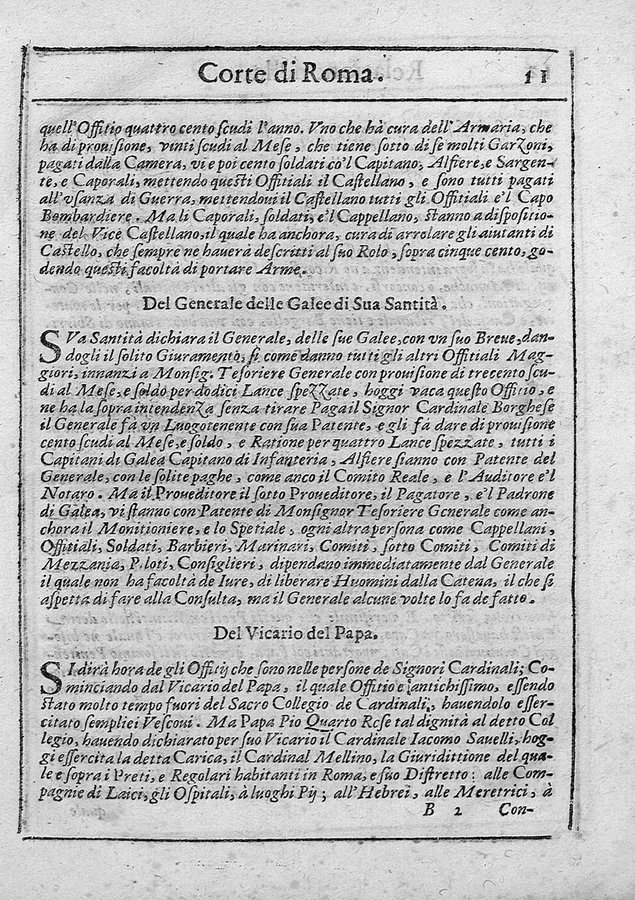 Corte di Roma. 11
quell'Offitio quattro cento scudi l'anno. Vno che hà cura dell'Armaria, che
ha di prouisione, vinti scudi al Mese, che tiene sotto di se molti Garzoni,
pagati dalla Camera, vi e poi cento soldati co'l Capitano, Alfiere, e Sargen-
te, e Caporali, mettendo questi Offitiali il Castellano, e sono tutti pagati
all'vsanza di Guerra, mettendoui il Castellano tutti gli Offitiali e'l Capo
Bombardiere. Ma li Caporali, soldati, e'l Cappellano, stanno a dispositio-
ne del Vice Castellano, il quale ha anchora, cura di arrolare gli aiutanti di
Castello, che sempre ne hauerà descritti al suo Rolo, sopra cinque cento, go-
dendo questi facoltà di portare Arme.
Del Generale delle Galee di Sua Santità.
SVa Santità dichiara il Generale, delle sue Galee, con vn suo Breue, dan-
dogli il solito Giuramento, si come danno tutti gli altri Offitiali Mag-
giori, innanzi a Monsig. Tesoriere Generale con prouisione di trecento scu-
di al Mese, e soldo per dodici Lance spezzate, hoggi vaca questo Offitio, e
ne ha la sopra intendenza senza tirare Paga il Signor Cardinale Borghese
il Generale fà vn Luogotenente con sua Patente, e gli fà dare di prouisione
cento scudi al Mese, e soldo, e Ratione per quattro Lance spezzate, tutti i
Capitani di Galea Capitano di Infanteria, Alfiere stanno con Patente del
Generale, con le solite paghe, come anco il Comito Reale, e l'Auditore e'l
Notaro. Ma il Proueditore il sotto Proueditore, il Pagatore, e'l Padrone
di Galea, vi stanno con Patente di Monsignor Tesoriere Generale come an-
chora il Monitioniere, e lo Spetiale, ogni altra persona come Cappellani,
Offitiali, Soldati, Barbieri, Marinari, Comiti, sotto Comiti, Comiti di
Mezzania, Piloti, Consiglieri, dipendano immediatamente dal Generale
il quale non ha facoltà de Iure, di liberare Huomini dalla Catena, il che si
aspetta di fare alla Consulta, ma il Generale alcune volte lo fa de fatto.
Del Vicario del Papa.
SI dirà hora de gli Offitij che sono nelle persone de Signori Cardinali; Co-
minciando dal Vicario del Papa, il quale Offitio e antichissimo, essendo
stato molto tempo fuori del Sacro Collegio de Cardinali, hauendolo esser-
citato semplici Vescoui. Ma Papa Pio Quarto Rese tal dignità al detto Col
legio, hauendo dichiarato per suo Vicario il Cardinale Iacomo Sauelli, hog-
gi essercita la detta Carica, il Cardinal Mellino, la Giuridittione del qua-
le e sopra i Preti, e Regolari habitanti in Roma, e suo Distretto: alle Com-
pagnie di Laici, gli Ospitali, à luoghi Pij; all'Hebrei, alle Meretrici, à
B 2 Con-